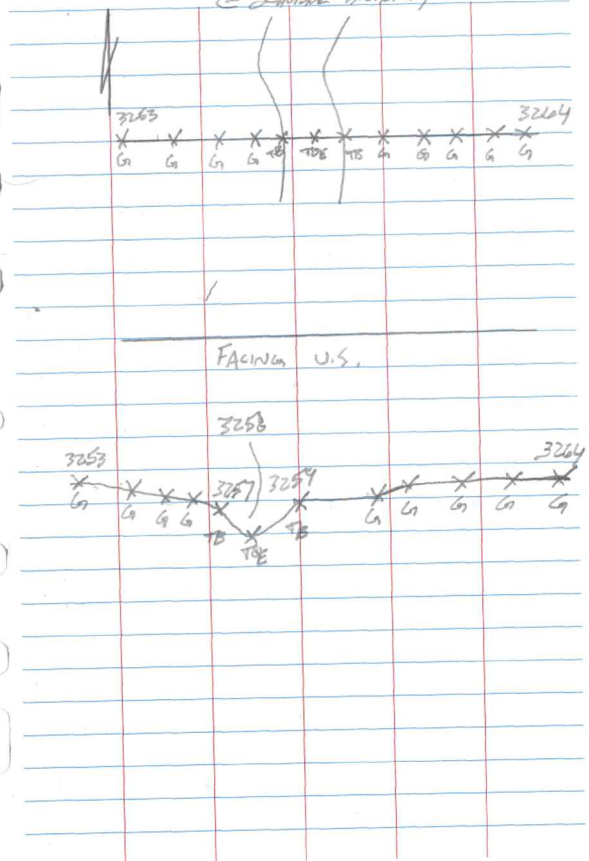 3253 3264
G G G G TB TOE TB G G G G G
FACING U.S.
3258
3253 3257 3259 3264
G G G G TB TOE TB G G G G G